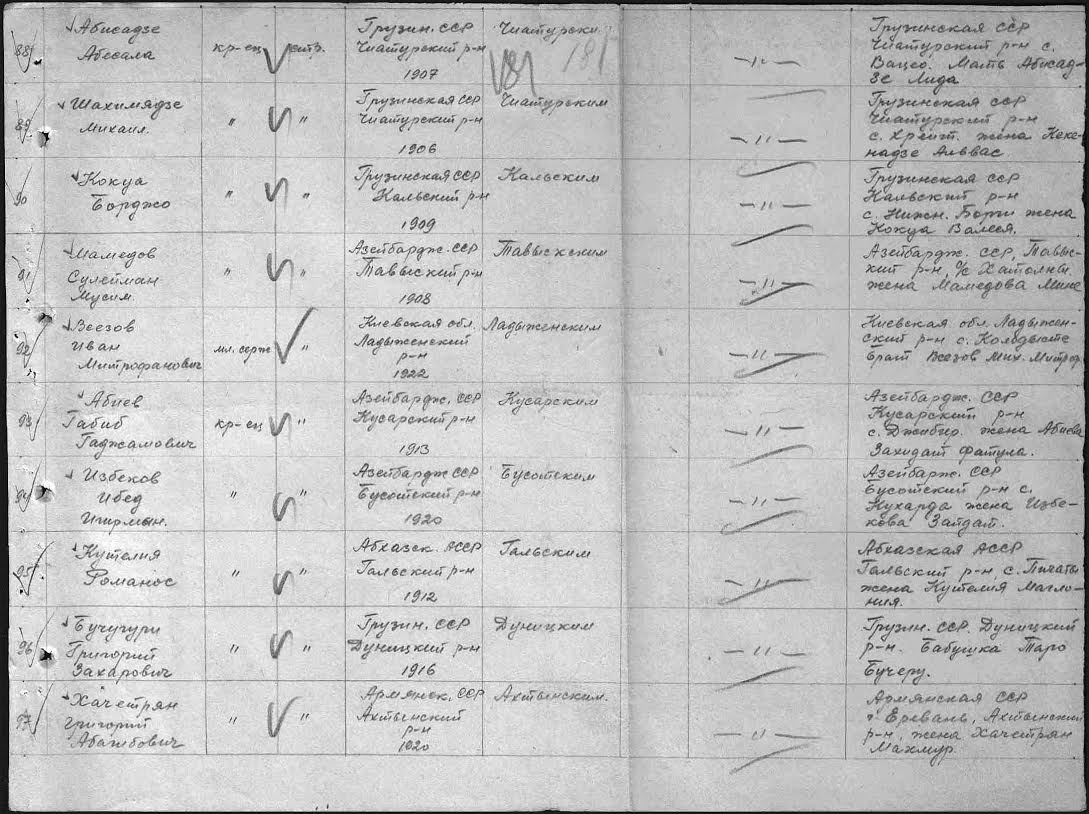 88 Абисадзе Абесала кр-ец Грузин. ССР Чиатурский р-н 1907 Чиатурским 181 181 —"— Грузинская ССР
Чиатурский р-н с.
Вацео. Мать Абисад-
зе Лида
89 Шахимядзе Михаил. " " Грузинская ССР Чиатурский р-н 1906 Чиатурским —"— Грузинская ССР
Чиатурский р-н
с. жена Кеке-
надзе
90 Кокуа Борджо " " Грузинская ССР Кальский р-н 1909 Кальским —"— Грузинская ССР
Кальский р-н
с. Нижн. жена
Кокуа
91 Мамедов Сулейман Мусим " " Азейбардж. ССР Тавыский р-н 1908 Тавыскским —"— Азейбардж. ССР, Тавыс-
кий р-н,
жена Мамедова Мине
92 Веезов Иван Митрофанович мл. серж " Киевская обл. Ладыженский р-н 1922 Ладыженским —"— Киевская обл. Ладыжен-
ский р-н с. Колодысте
брат Веезов Мих. Митроф
93 Абиев Габиб Гаджамович кр-ец " Азейбардж. ССР Кусарский р-н 1913 Кусарским —"— Азейбардж. ССР
Кусарский р-н
с. Джибир. жена Абиева
Захидат Фатула.
94 Избеков Ибед " " Азейбардж ССР Бусотский р-н 1920 Бусотским —"— Азейбарж. ССР
Бусотский р-н с.
Кухарда жена Избе-
кова Зайдат.
95 Кутелия Романос " " Абхазск. АССР Гальский р-н 1912 Гальским —"— Абхазская АССР
Гальский р-н с.
жена Кутелия Магло-
ния.
96 Бучугури Григорий Захарович " " Грузин. ССР Дуницкий р-н 1916 Дуницким —"— Грузин. ССР. Дуницкий
р-н. Бабушка Таро
Бучеру.
97 Хачетрян Григорий " " Армянск. ССР Ахтынский р-н 1920 Ахтынским. —"— Армянская ССР
г Еревань, Ахтынский
р-н, жена Хачетрян
Махмур.